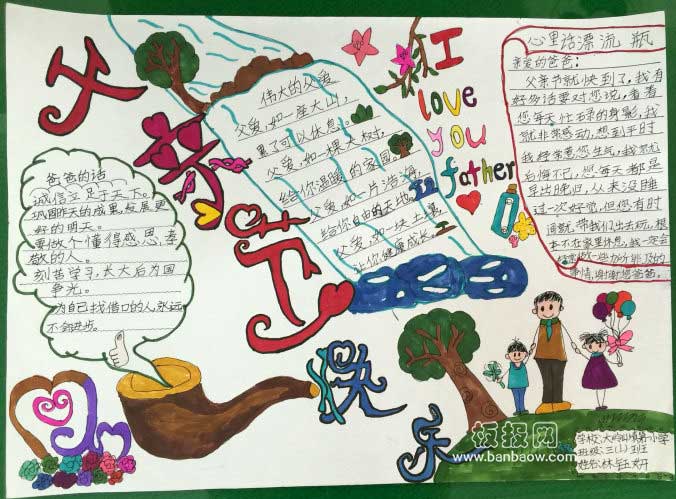 父亲节
快乐
I
love
you
father
爸爸的话
诚信立足于天下。
巩固昨天的成果,发展更
好的明天。
要做个懂得感恩、孝
敬的人。
刻苦学习,长大后为国
争光。
为自己找借口的人永远
不会进步。
伟大的父爱
父爱,如一座大山,
累了可以休息。
父爱,如一棵大树,
给你温暖的家园。
父爱,如一片浩海,
给你自由的天地。
父爱,如一块土壤,
让你健康成长。
心里话漂流瓶
亲爱的爸爸:
父亲节就快到了,我有
好多话要对您说,看着
您每天忙碌的身影,我
就非常感动,想到平时
我经常惹您生气,我就
后悔不已,您每天都是
早出晚归,从来没睡
过一次好觉,但您有时
间就带我们出去玩,根
本不在家里休息,我一定会
做一些力所能及的
事情,谢谢您爸爸。
板报网
www.banbaow.com
学校:大 镇第一小学
班级:三(1)班
姓名:林钰妍